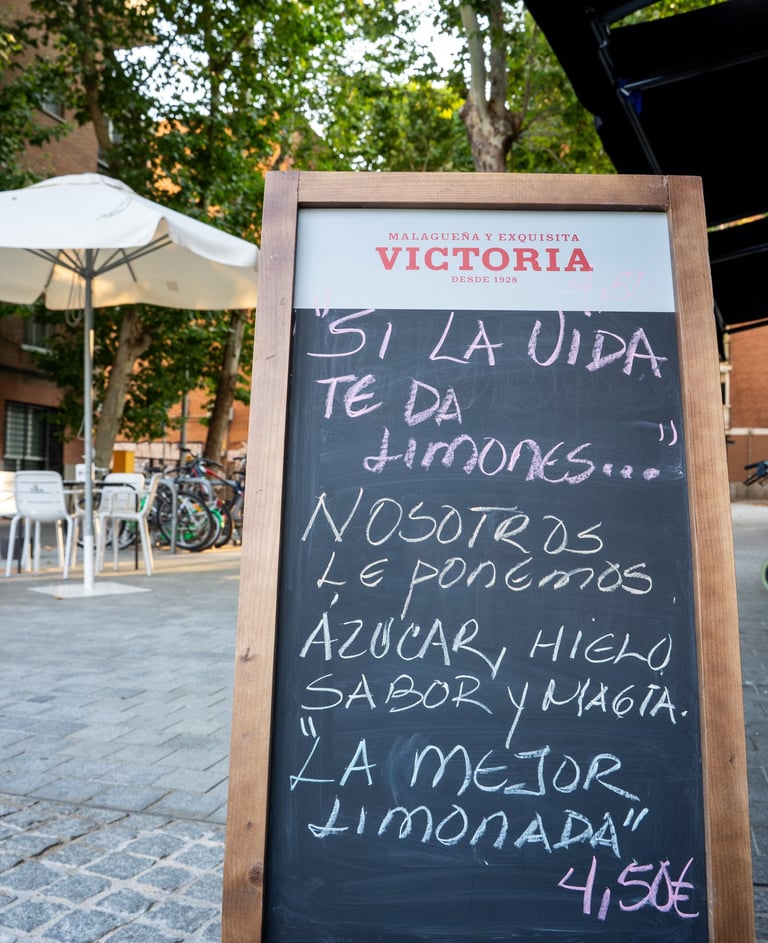 MALAGUEÑA Y EXQUISITA
VICTORIA
DESDE 1928
"SI LA VIDA
TE DA
LIMONES..."
NOSOTROS
LE PONEMOS
ÁZUCAR, HIELO,
SABOR Y MAGIA.
"LA MEJOR
LIMONADA"
4,50€